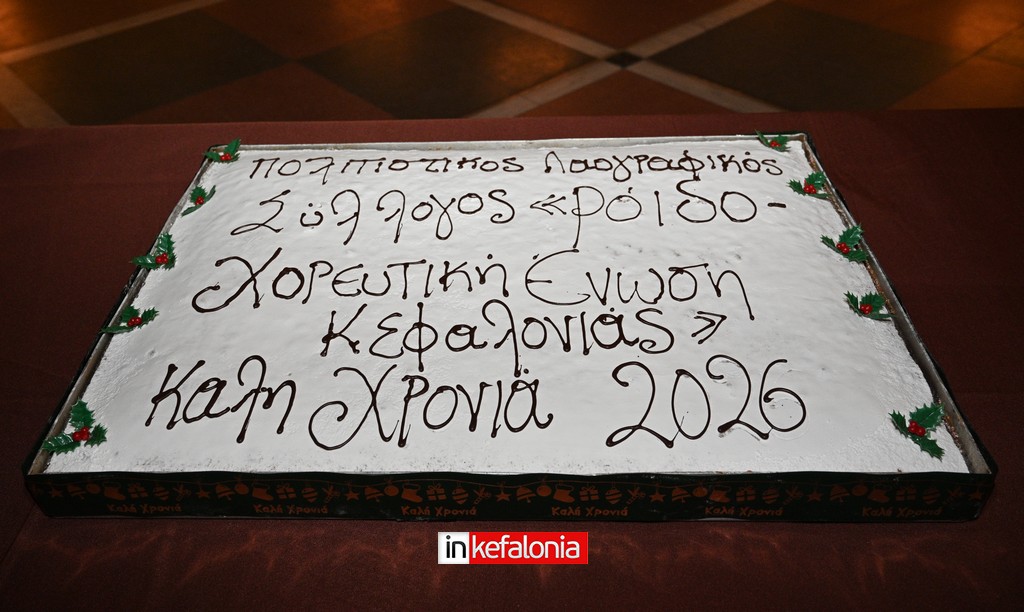 ΠΟΛΙΤΙΣΤΙΚΟΣ Λαογραφικός
Σύλλογος «Ρόιδο-
Χορευτική Ένωση
Κεφαλονιάς»
Καλη Χρονιά 2026
Καλή Χρονιά Καλή Χρονιά Καλή Χρονιά Καλή Χρονιά Καλή Χρονιά Καλή Χρονιά
inkefalonia